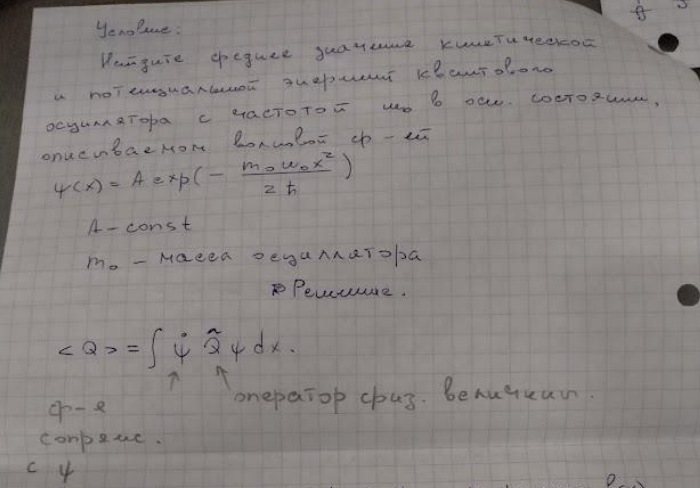 Условие:
Найдите среднее значение кинетической
и потенциальной энергий квантового
осциллятора с частотой ω₀ в осн. состоянии,
описываемом волновой ф-ей
ψ(x) = A exp(- m₀ω₀x² / 2ħ)
A - const
m₀ - масса осциллятора
Решение.
<Q> = ∫ ψ* Q̂ ψ dx.
оператор физ. величины.
ф-я
сопряж.
с ψ